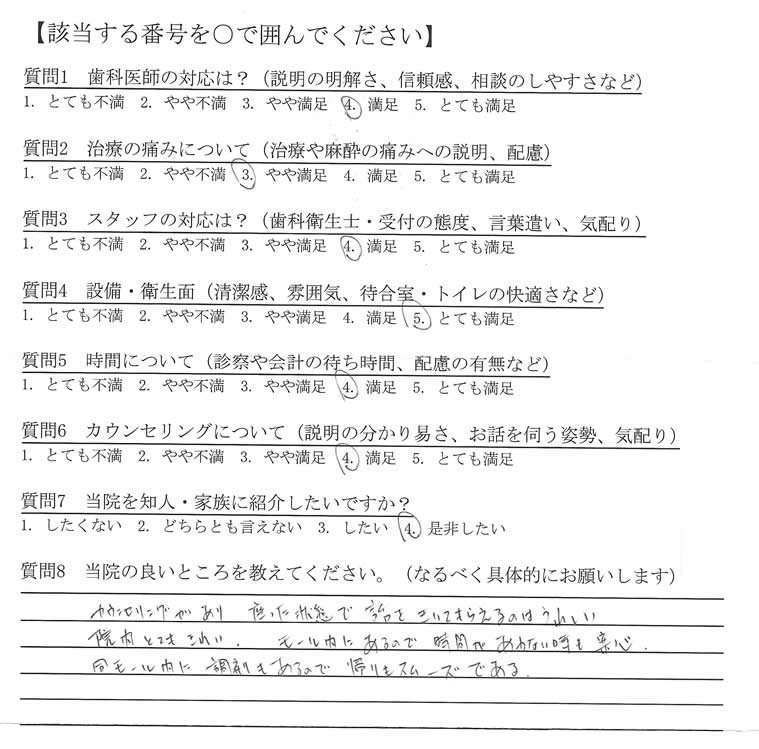 【該当する番号を○で囲んでください】
質問1 歯科医師の対応は？（説明の明解さ、信頼感、相談のしやすさなど）
1. とても不満 2. やや不満 3. やや満足 4. 満足 5. とても満足
質問2 治療の痛みについて（治療や麻酔の痛みへの説明、配慮）
1. とても不満 2. やや不満 3. やや満足 4. 満足 5. とても満足
質問3 スタッフの対応は？（歯科衛生士・受付の態度、言葉遣い、気配り）
1. とても不満 2. やや不満 3. やや満足 4. 満足 5. とても満足
質問4 設備・衛生面（清潔感、雰囲気、待合室・トイレの快適さなど）
1. とても不満 2. やや不満 3. やや満足 4. 満足 5. とても満足
質問5 時間について（診察や会計の待ち時間、配慮の有無など）
1. とても不満 2. やや不満 3. やや満足 4. 満足 5. とても満足
質問6 カウンセリングについて（説明の分かり易さ、お話を伺う姿勢、気配り）
1. とても不満 2. やや不満 3. やや満足 4. 満足 5. とても満足
質問7 当院を知人・家族に紹介したいですか？
1. したくない 2. どちらとも言えない 3. したい 4. 是非したい
質問8 当院の良いところを教えてください。（なるべく具体的にお願いします）
カウンセリングがあり 座った状態で 話を きいてもらえるのはうれしい
院内とてもきれい. モール内にあるので 時間があわない時も 安心.
同モール内に 調剤もあるので 帰りもスムーズである.